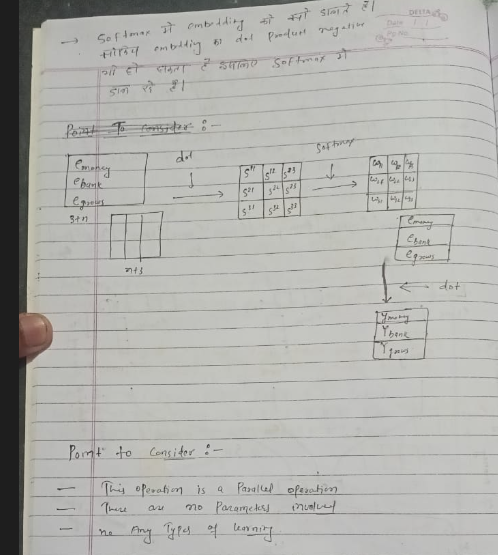 → Softmax में embedding को क्यों डालते है।
क्योंकि embedding का dot Product negative
भी हो सकता है इसलिए Softmax में
डाल रहे हैं।
DELTA
Date
Point To Consider :-
e money
e bank
e grows
dot
S11 S12 S13
S21 S22 S23
S31 S32 S33
softmax
3×n
n×3
e money
e bank
e grows
← dot
Y money
Y bank
Y grows
Point to Consider :-
— This operation is a Parallel operation
— There are no Parameters involved
— no Any Types of learning